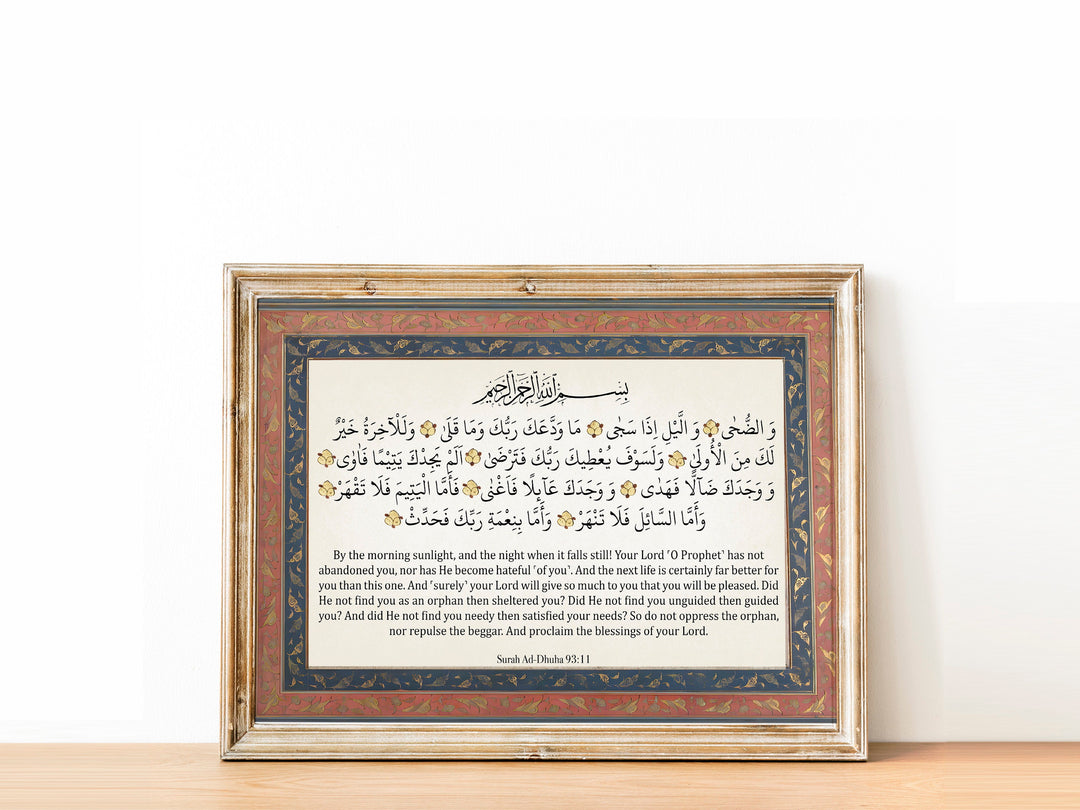 بِسْمِ اللَّهِ الرَّحْمَٰنِ الرَّحِيمِ
وَ الضُّحٰى وَ الَّيْلِ اِذَا سَجٰى مَا وَدَّعَكَ رَبُّكَ وَمَا قَلٰى وَلَلْآخِرَةُ خَيْرٌ
لَكَ مِنَ الْأُولٰى وَلَسَوْفَ يُعْطِيكَ رَبُّكَ فَتَرْضٰى اَلَمْ يَجِدْكَ يَتِيْمًا فَاٰوٰى
وَ وَجَدَكَ ضَآلًّا فَهَدٰى وَ وَجَدَكَ عَآىِٕلًا فَاَغْنٰى فَأَمَّا الْيَتِيمَ فَلَا تَقْهَرْ
وَأَمَّا السَّائِلَ فَلَا تَنْهَرْ وَأَمَّا بِنِعْمَةِ رَبِّكَ فَحَدِّثْ
By the morning sunlight, and the night when it falls still! Your Lord ˹O Prophet˺ has not
abandoned you, nor has He become hateful ˹of you˺. And the next life is certainly far better for
you than this one. And ˹surely˺ your Lord will give so much to you that you will be pleased. Did
He not find you as an orphan then sheltered you? Did He not find you unguided then guided
you? And did He not find you needy then satisfied your needs? So do not oppress the orphan,
nor repulse the beggar. And proclaim the blessings of your Lord.
Surah Ad-Dhuha 93:11